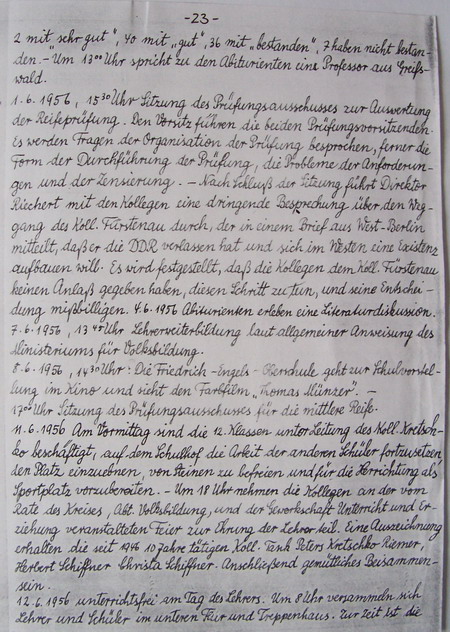 -23-
2 mit „sehr gut", 40 mit „gut", 36 mit „bestanden", 7 haben nicht bestan-
den. - Um 13⁰⁰ Uhr spricht zu den Abiturienten ein Professor aus Greifs-
wald.
1.6.1956, 15³⁰ Uhr Sitzung des Prüfungsausschusses zur Auswertung
der Reifeprüfung. Den Vorsitz führen die beiden Prüfungsvorsitzenden.
Es werden Fragen der Organisation der Prüfung besprochen, ferner die
Form der Durchführung der Prüfung, die Probleme der Anforderun-
gen und der Zensierung. - Nach Schluß der Sitzung führt Direktor
Riechert mit den Kollegen eine dringende Besprechung über den Weg-
gang des Koll. Fürstenau durch, der in einem Brief aus West-Berlin
mitteilt, daß er die DDR verlassen hat und sich im Westen eine Existenz
aufbauen will. Es wird festgestellt, daß die Kollegen dem Koll. Fürstenau
keinen Anlaß gegeben haben, diesen Schritt zu tun, und seine Entschei-
dung mißbilligen. 4.6.1956 Abiturienten erleben eine Literaturdiskussion.
7.6.1956, 13⁴⁵ Uhr Lehrerweiterbildung laut allgemeiner Anweisung des
Ministeriums für Volksbildung.
8.6.1956, 14³⁰ Uhr: Die Friedrich-Engels-Oberschule geht zur Schulvorstel-
lung im Kino und sieht den Farbfilm „Thomas Münzer". -
17⁰⁰ Uhr Sitzung des Prüfungsausschusses für die mittlere Reife.
11.6.1956 Am Vormittag sind die 12. Klassen unter Leitung des Koll. Kretsch-
ko beschäftigt, auf dem Schulhof die Arbeit der anderen Schüler fortzusetzen,
den Platz einzuebnen, von Steinen zu befreien und für die Herrichtung als
Sportplatz vorzubereiten. - Um 18 Uhr nehmen die Kollegen an der vom
Rate des Kreises, Abt. Volksbildung, und der Gewerkschaft Unterricht und Er-
ziehung veranstalteten Feier zur Ehrung der Lehrer teil. Eine Auszeichnung
erhalten die seit 1946 10 Jahre tätigen Koll. Tank Peters Kretschko Riemer,
Herbert Schiffner Christa Schiffner. Anschließend gemütliches Beisammen-
sein.
12.6.1956 unterrichtsfrei am Tag des Lehrers. Um 8 Uhr versammeln sich
Lehrer und Schüler im unteren Flur und Treppenhaus. Zur Zeit ist die